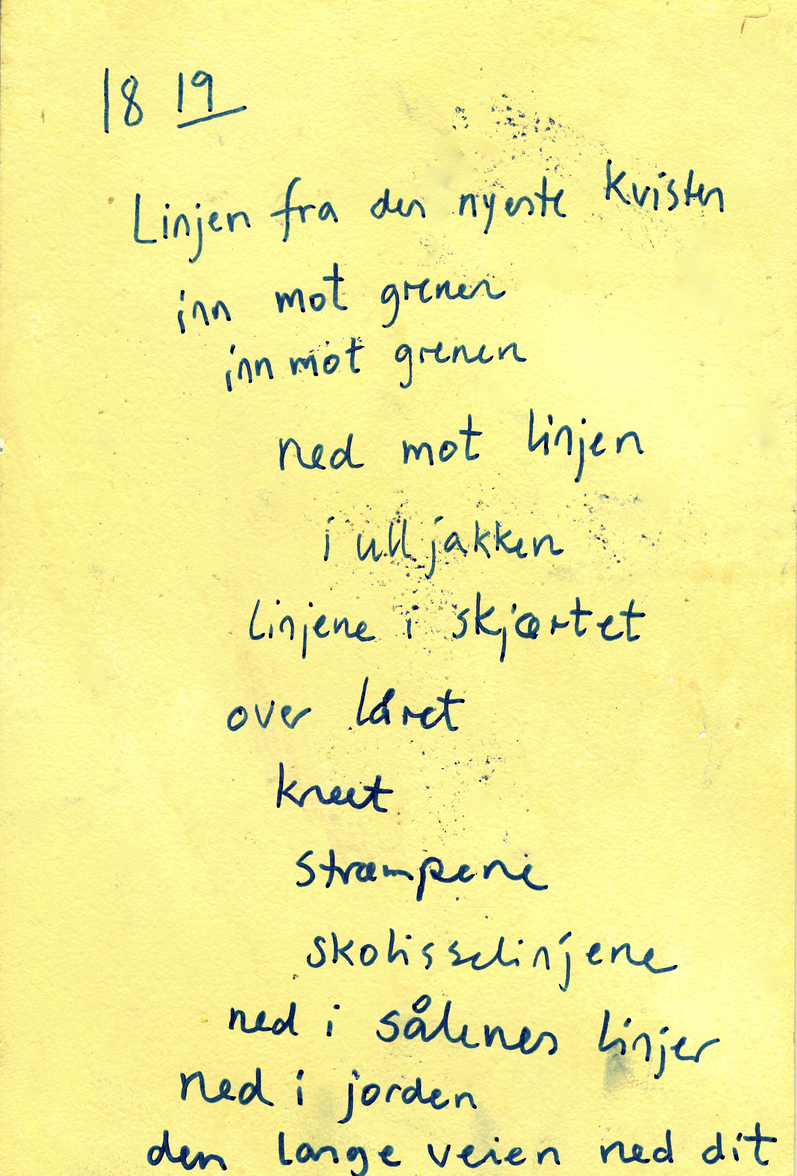 18 19
Linjen fra den nyeste kvisten
inn mot grenen
inn mot grenen
ned mot linjen
i ulljakken
linjene i skjørtet
over låret
kneet
strømpene
skolisselinjene
ned i sålenes linjer
ned i jorden
den lange veien ned dit